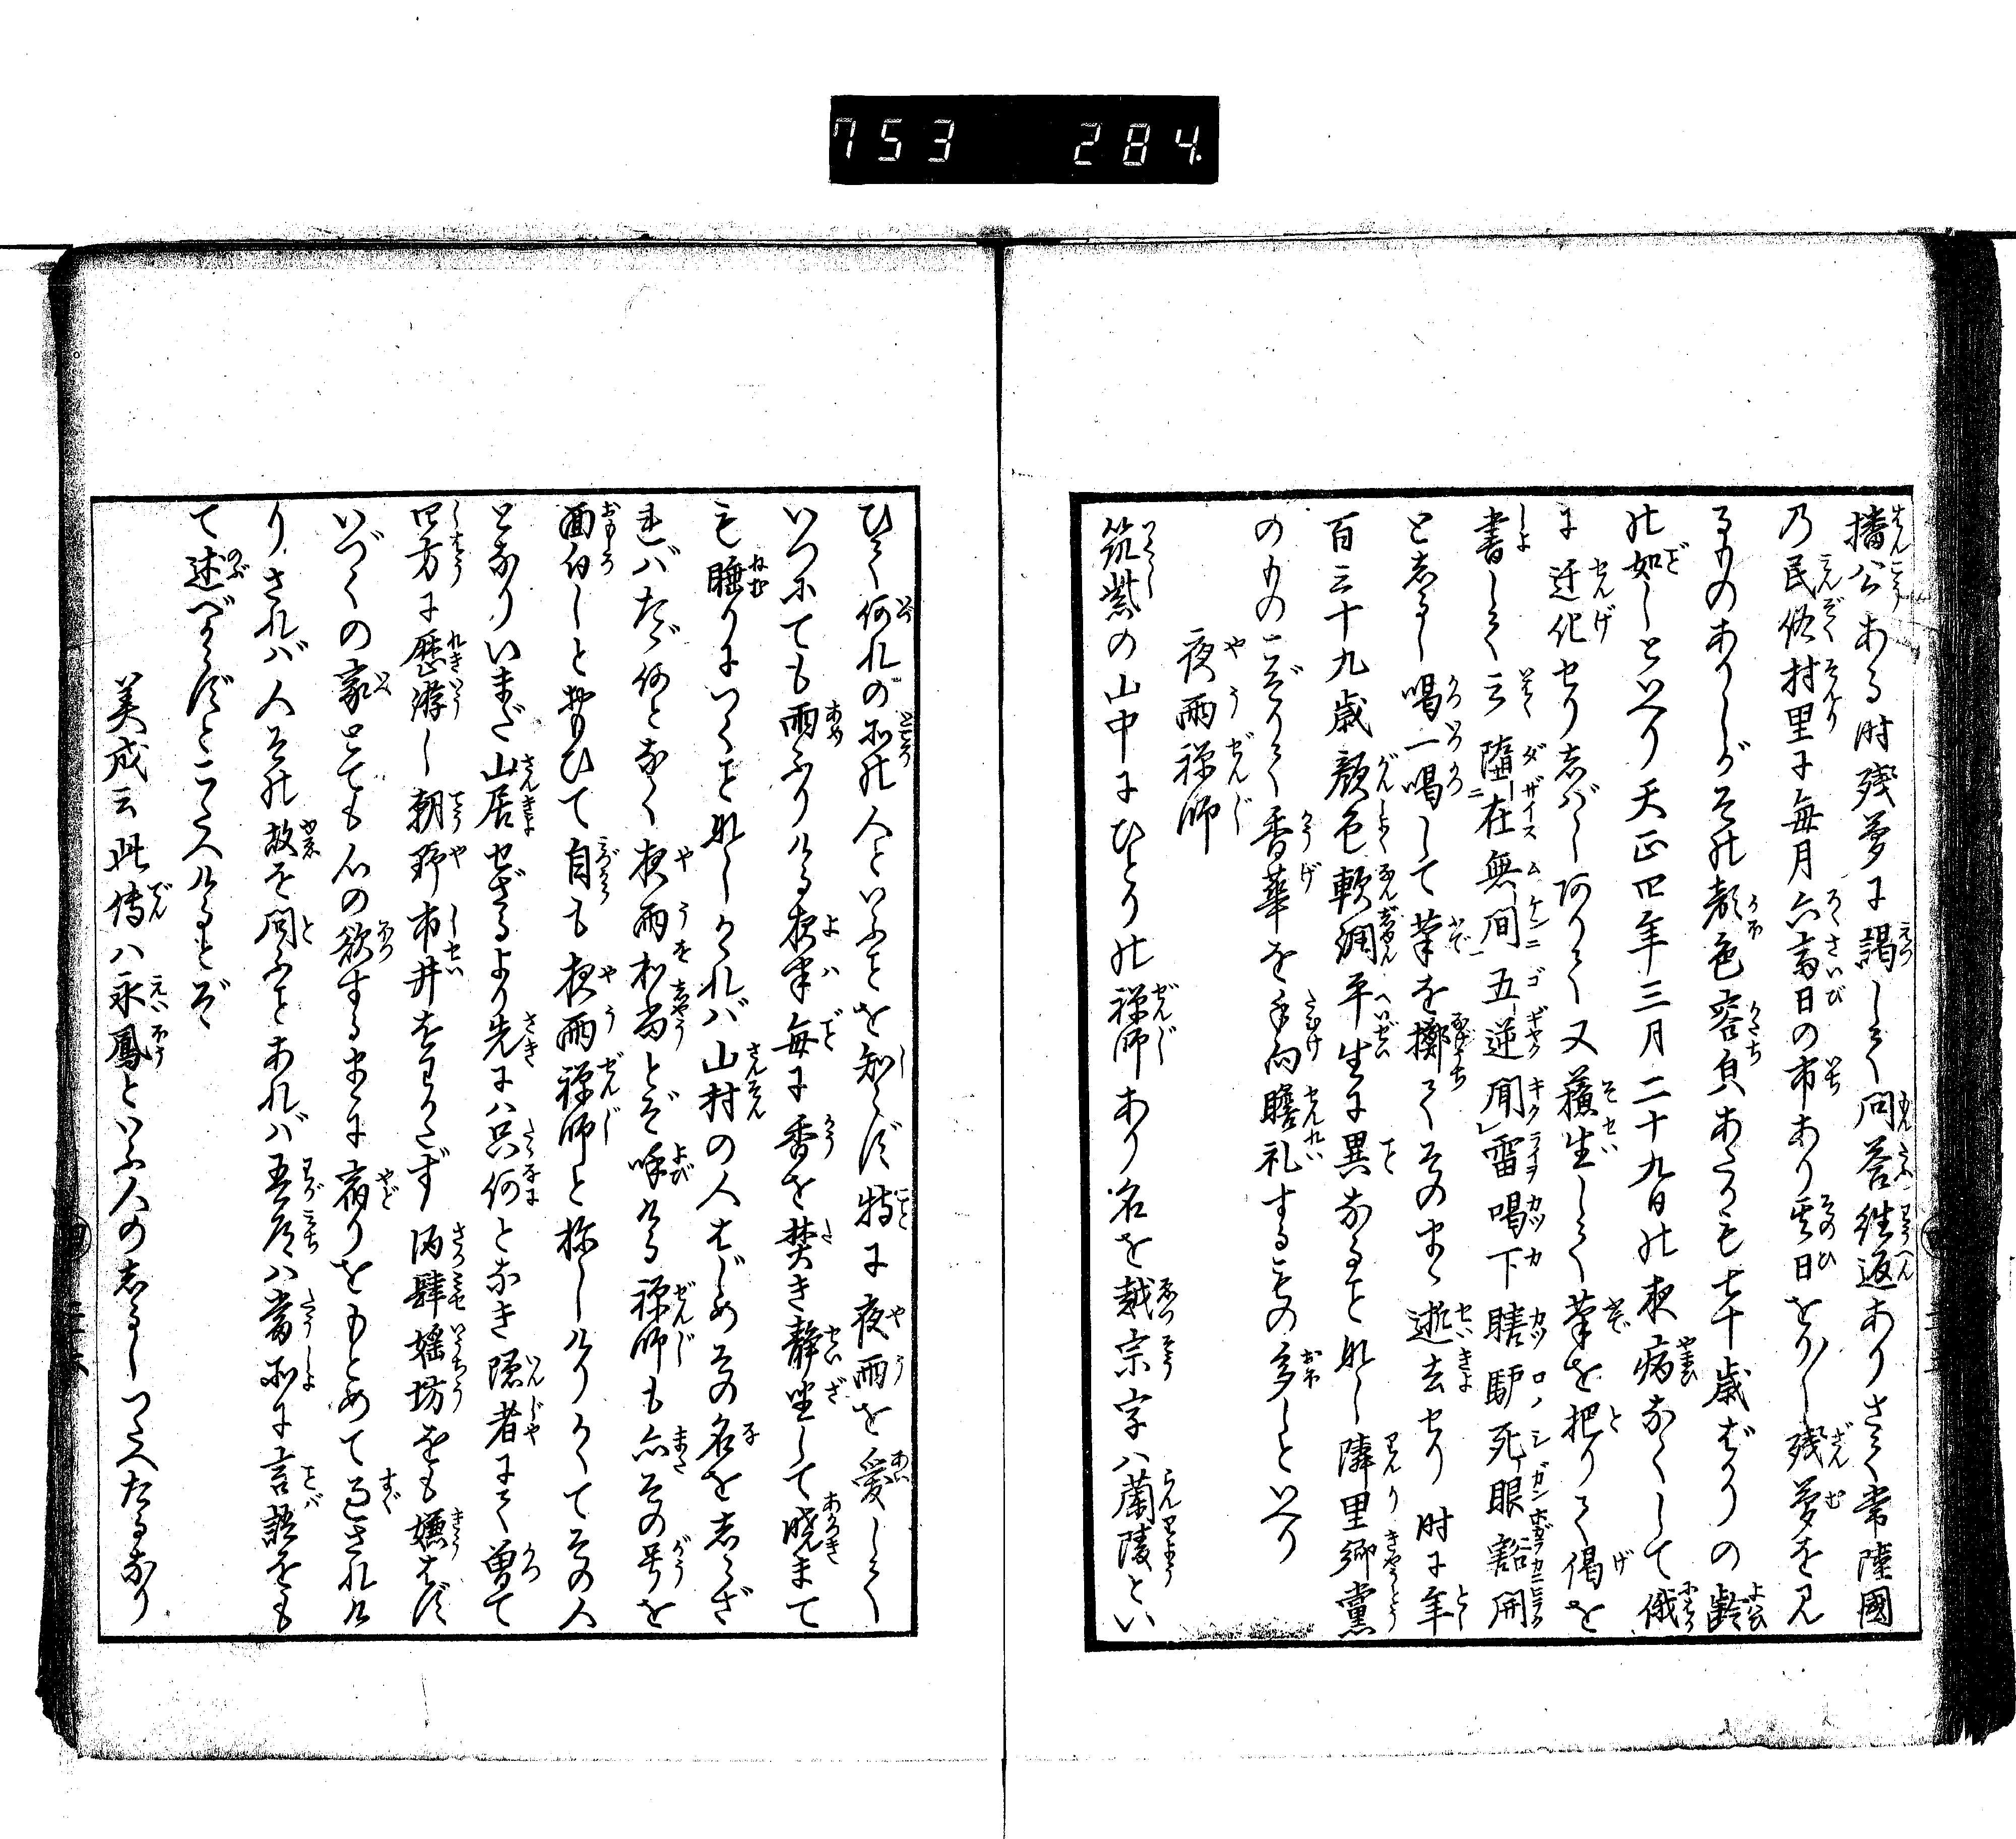 753 284.
播公ある時残夢に謁して問答往返ありさて常陸國
乃民俗村里に毎月六斎日の市あり其日をりし残夢を見
るものありしがその顔色容貌あたかも七十歳ばかりの齢
の如しといへり天正四年三月二十九日の夜病なくして俄
に迁化せりしばしありて又蘓生して筆を把りて偈を
書して云墮在無間五逆聞雷喝下瞎驢死眼豁開
としるし喝一喝して筆を擲てそのまゝ逝去せり時に年
百三十九歳顔色軟潤平生に異なること無し隣里郷黨
のものこぞりて香華を手向瞻礼するもの多しといへり
夜雨禅師
筑紫の山中にひとりの禅師あり名を越宗字ハ蘭陵とい
ひて何れの所の人といふことを知らず特に夜雨を愛して
いつにても雨ふりける夜半毎に香を焚き静坐して暁まで
も睡りにつくこと無しかれバ山村の人はじめその名をしらざ
れバたゞ何となく夜雨和尚とぞ呼ける禅師も亦その号を
面白しと思ひて自も夜雨禅師と称しけりかくてその人
となりいまだ山居せざるより先にハ只何となき隠者にて曽て
四方に歴游し朝野市井をわかたず酒肆婬坊をも嫌はず
いづくの家とても心の欲するまゝに宿りをもとめて過されけ
りされバ人その故を問ふことあれバ吾道ハ當所に言語をも
て述べからずとこたへけるとぞ
美成云此傳ハ永鳳といふ人のしるしつたへたるなり